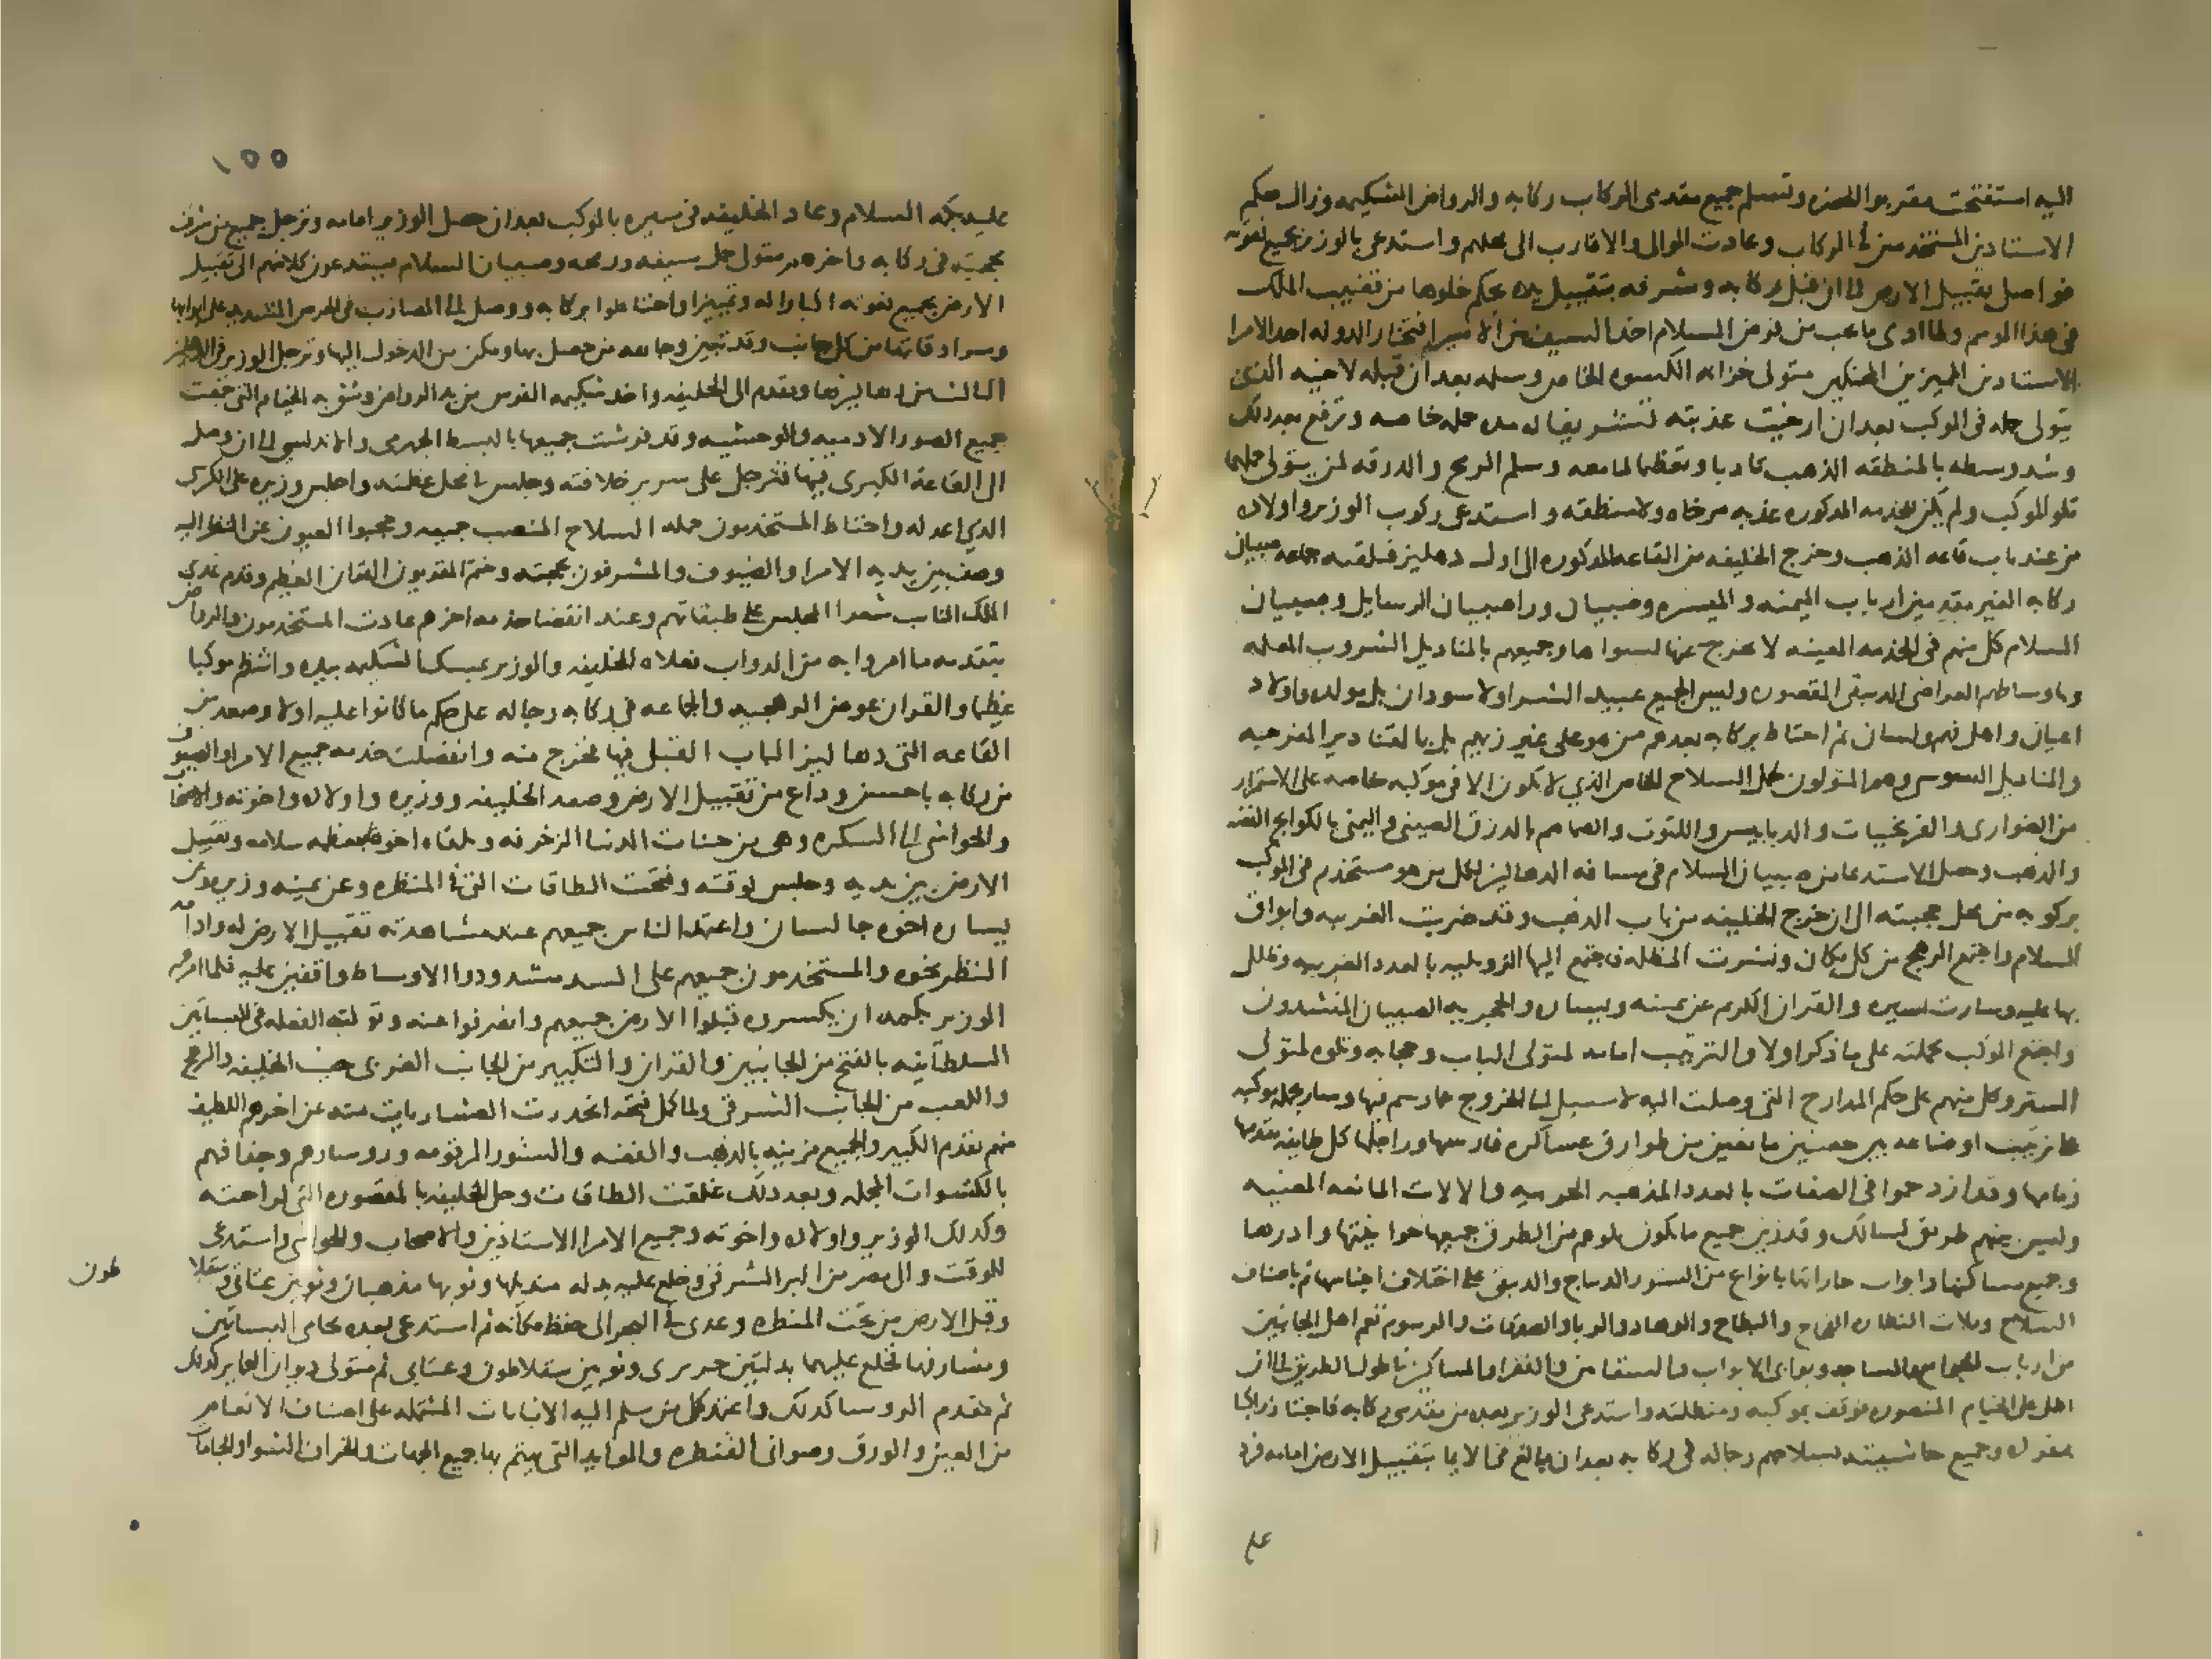 اليه استفتحت مقربو الحضره وتسلم جميع مقدمى الركاب ركابه والرواض الشكيمه وزال حكم
الاستادين المستخدمين فى الركاب وعادت الموالى والاقارب الى محلهم واستدعى بالوزير بجميع نعوته
فواصل بتقبيل الارض الى ان قبل ركابه وشرفه بتقبيل يده بحكم خلوها من قضيب الملك
فى هذا الموسم ولما ادى ما يجب من فرض السلام اخذ السيف من الامير افتخار الدوله احد الامرا
الاستادين المميزين المحنكين متولى خزانه الكسوه الخاص وسلمه بعد ان قبله لاخيه الذى
يتولى حمله فى الموكب بعد ان ارخيت عذبته تشريفا له مده حمله خاصه وترفع بعد ذلك
وشد وسطه بالمنطقه الذهب تادبا وتعظيما لما معه وسلم الرمح والدرقه لمن يتولى حملهما
تلو الموكب ولم يكن للخدمه المدكوره عذبه مرخاه ولا منطقه واستدعى ركوب الوزير واولاده
من عند باب قاعه الذهب وخرج الخليفه من القاعه المدكوره الى اول دهليز فتلقته جماعه صبيان
ركابه الغير مقدمين ارباب الميمنه والميسره وصبيان وراصبيان الرسايل وصبيان
السلام كل منهم فى الخدمه المعينه لا يخرج عنها لسواها وجميعهم بالمناديل الشروب المعلمه
وباوساطهم العراضى الدبيقى المقصوره وليس الجميع عبيد الشرا ولا سودان بل مولده واولاد
اعيان واهل فهم ولسان ثم احتاط بركابه بعدهم من هو على غير زيهم بل بالقنابير المفرجيه
والمناديل السوسى وهم المتولون لحمل السلاح الخاص الذى لا يكون الا فى موكبه خاصه على الاستمرار
من الصوارى والفرنجيات والدبابيس واللتوت والصماصم بالدرق الصينى واليمنى بالكوابج الفضه
والذهب وحصل الاستدعا من صبيان السلام فى مسافه الدهاليز لكل من هو مستخدم فى الموكب
بركوبه من محل حجبته الى ان خرج الخليفه من باب الذهب وقد ضربت الغربيه وابواق
السلام واجتمع الرهج من كل مكان ونشرت المظله فاجتمع اليها الزويليه بالعدد الغريبه وظلل
بها عليه وسارت بسيره والقران الكريم عن يمينه ويساره والحجريه الصبيان المنشدون
واجتمع الموكب بجملته على ما ذكر اولا والترتيب امامه لمتولى الباب وحجابه وتلوه لمتولى
الستر وكل منهم على حكم المدارج التى وصلت اليه لا سبيل الى الخروج عما رسم فيها وسار بجمله موكبه
على ترتيب اوضاعه بين حصنين مانعين من طوارق عساكره فارسها وراجلها كل طايفه يقدمها
زمامها وقد ازدحموا فى الصفات بالعدد المذهبه الحربيه والالات المانعه المغنيه
وليس بينهم طريق لسالك وقد زين جميع ما يكون بلوهم من الطرق جميعها حوانيتها وادرها
وجميع مساكنها وابواب حاراتها بانواع من الستور الديباج والدبيقى على اختلاف اجناسها ثم باصناف
السلاح وملات النظاره الفجاج والبطاح والوهاد والربا والصدقات والرسوم تعم اهل الجانبين
من ارباب الجوامع والمساجد وبوابى الابواب والسقا من والفقرا والمساكين فى طول الطريق الى ان
اطل على الخيام المنصوره فوقف بموكبه ومظلته واستدعى الوزير بعده من مقدمى ركابه فاجتاز راكبا
بمفرده وجميع حاشيته بسلاحهم رجاله فى ركابه بعد ان بالغ فى الايما بتقبيل الارض امامه فرد
على
١٥٥
عليه بكمه السلام وعاد الخليفه فى سيره بالموكب بعد ان حصل الوزير امامه وترجل جميع من شرف
بحجبته فى ركابه واخرهم متولى حمل سيفه ورمحه وصبيان السلام يستدعون كلا منهم الى تقبيل
الارض بجميع نعوته اكبارا له وتمييزا واحتاطوا بركابه ووصل الى المضارب فى الحرس الشديد على ابوابها
وسرادقاتها من كل جانب وقد تبين وجاهه من حصل بها ومكن من الدخول اليها وترجل الوزير فى الدهليز
الثالث من دهاليزها وتقدم الى الخليفه واخد شكيمه الفرس من يد الرواض وشق به الخيام التى جمعت
جميع الصور الادميه والوحشيه وقد فرشت جميعها بالبسط الجهرمى والاندلسى الى ان وصل
الى القاعه الكبرى فيها فترجل على سرير خلافته وجلس فى محل عظمته واجلس وزيره على الكرسى
الذى اعد له واحتاط المستخدمون حمله السلاح المنتصب جميعه وحجبوا العيون عن النظر اليه
وصف بين يديه الامرا والضيوف والمشرفون بحجبته وختم المقريون القران العظيم وقدم عدى
الملك النايب شعرا المجلس على طبقاتهم وعند انقضا خدمه اخرهم عادت المستخدمون والرواض
بتقدمه ما امروا به من الدواب فعلاه الخليفه والوزير يمسك الشكيمه بيده وانتظم موكبا
عظيما والقران عوض الرهجيه والجماعه فى ركابه رجاله على حكم ما كانوا عليه اولا وصعد من
القاعه التى دهاليز الباب القبلى فيها فخرج منه وانفصلت خدمه جميع الامرا والضيوف
من ركابه باحسن وداع من تقبيل الارض وصعد الخليفه ووزيره واولاده واخوته والاصحاب
والحواشى الى السكره وهى من جنات الدنيا المزخرفه وتلقاه اخوه بعظمه سلامه وتقبيل
الارض بين يديه وجلس لوقته وفتحت الطاقات التى فى المنظره وعن يمينه وزيره وعن
يساره اخوه جالسان واعتمد الناس جميعهم عند مشاهدته تقبيل الارض له وادامه
النظر نحوه والمستخدمون جميعهم على السد مشدودوا الاوساط واقفين عليه فلما امرهم
الوزير بكمه ان يكسروه قبلوا الارض جميعهم وانصرفوا عنه وتولته الفعله فى البساتين
السلطانيه بالفتح من الجانبين والقران والتكبير من الجانب الغربى حيث الخليفه والرهج
واللعب من الجانب الشرقى ولما كمل فتحه انحدرت العشاريات منه عن اخرهم اللطيف
منهم يقدم الكبير والجميع مزينه بالذهب والفضه والستور المرقومه وروسايهم وخدامهم
بالكسوات الجميله وبعد ذلك غلقت الطاقات وحل الخليفه بالمقصوره التى لراحته
وكدلك الوزير واولاده واخوته وجميع الامرا الاستاذين والاصحاب والحواشى واستدعى
للوقت والى مصر من البر الشرقى وخلع عليه بدله منديلها وثوبها مذهبان وثوبين عتابى وسقلا
طون
وقبل الارض من تحت المنظره وعدى فى البحر الى حفظ مكانه ثم استدعى بعده حامى البساتين
ومشارفها فخلع عليهما بدلتين حريرى وثوبين سقلاطون وعتابى ثم متولى ديوان العماير كذلك
ثم مقدم الروسا كدلك واعتمد كل من سلم اليه الاثباتات المشتمله على اصناف الانعام
من العين والورق وصوانى الفطره والموايد التى يهتم بها جميع الجهات والخراف الشوا والجامات